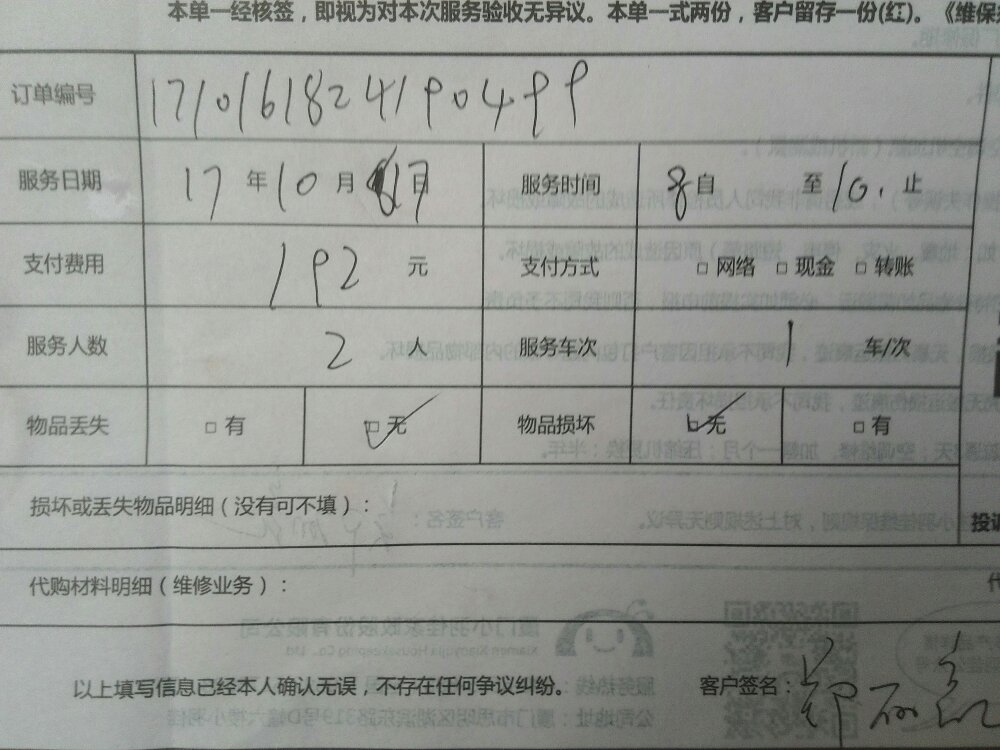 本单一经核签，即视为对本次服务验收无异议。本单一式两份，客户留存一份(红)。《维保
订单编号 1710161824190499
服务日期 17 年 10 月 17日 服务时间 8自 至 10. 止
支付费用 192 元 支付方式 □ 网络 □ 现金 □ 转账
服务人数 2 人 服务车次 1 车/次
物品丢失 □ 有 □ 无 物品损坏 □ 无 □ 有
损坏或丢失物品明细（没有可不填）：
投诉
代购材料明细（维修业务）：
以上填写信息已经本人确认无误，不存在任何争议纠纷。 客户签名：郑丽红